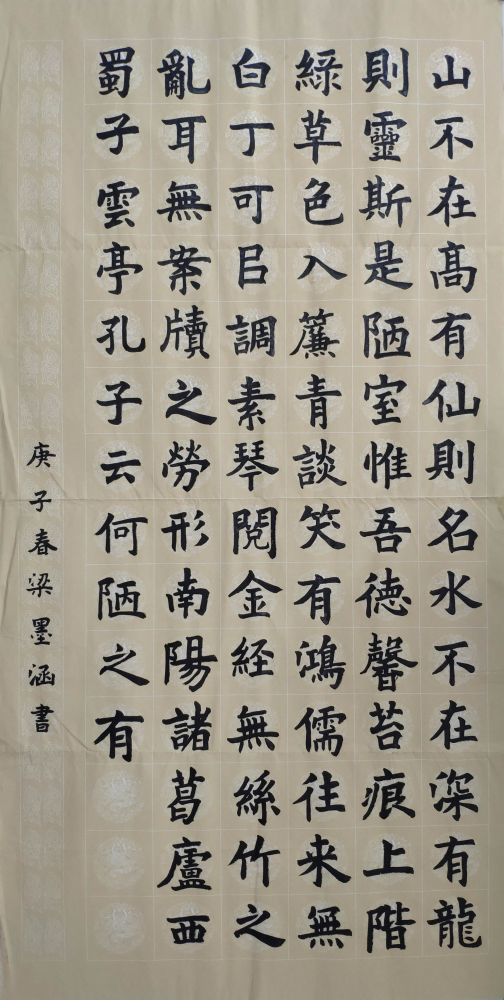 山不在高有仙則名水不在深有龍
則靈斯是陋室惟吾德馨苔痕上階
綠草色入簾青談笑有鴻儒往来無
白丁可㠯調素琴閱金経無絲竹之
亂耳無案牘之勞形南陽諸葛廬西
蜀子雲亭孔子云何陋之有
庚子春梁墨涵書